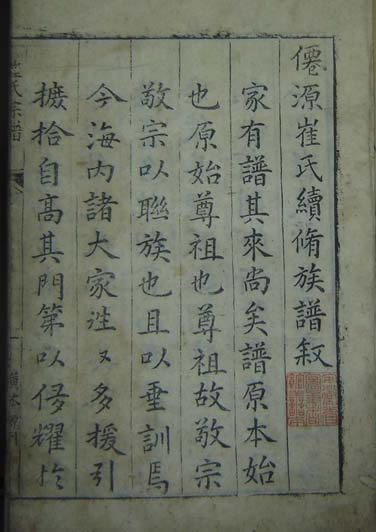 僊源崔氏續脩族譜叙
家有譜其來尚矣譜原本始
也原始尊祖也尊祖故敬宗
敬宗以聯族也且以垂訓焉
今海内諸大家誰又多援引
摭拾自高其門第以侈耀於
氏宗譜